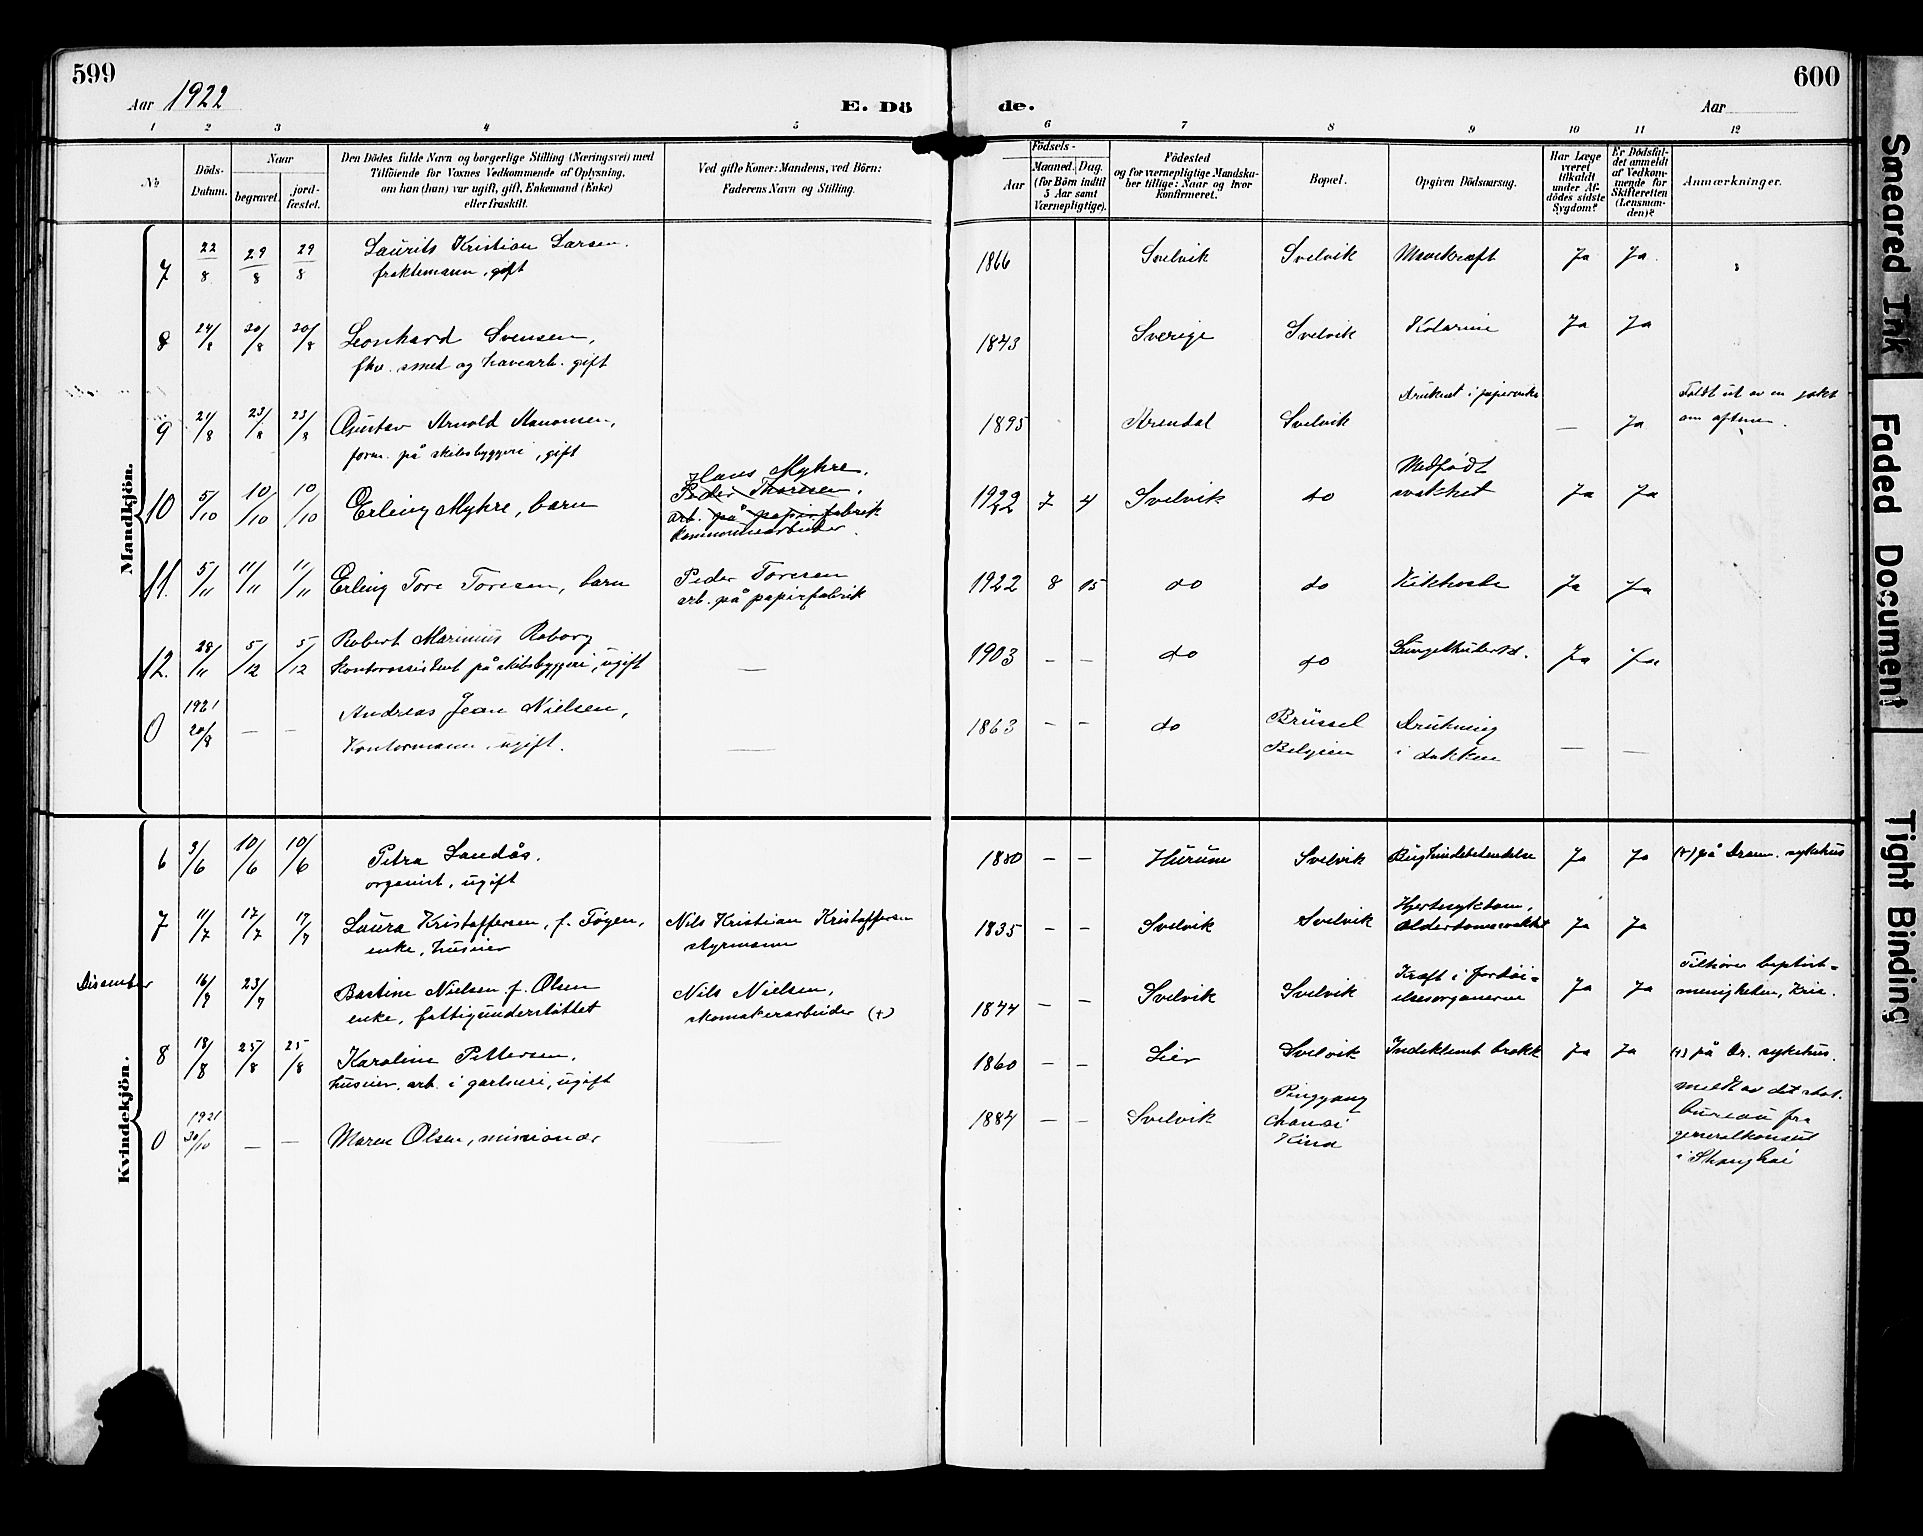 599
600
Aar 1922
E. Dö
de.
Aar
1 2 3 4 5 6 7 8 9 10 11 12
No
Döds-
Datum.
Naar
begravet.
jord-
fæstet.
Den Dödes fulde Navn og borgerlige Stilling (Næringsvei) med
Tilföiende for Voxnes Vedkommende af Oplysning,
om han (hun) var ugift, gift, Enkemand (Enke)
eller fraskilt.
Ved gifte Koner: Mandens, ved Börn:
Faderens Navn og Stilling.
Födsels-
Aar
Maaned. Dag.
(for Börn indtil
5 Aar samt
Værnepligtige).
Födested
og for værnepligtige Mandska-
ber tillige: Naar og hvor
konfirmeret.
Bopæl.
Opgiven Dödsaarsag.
Har Læge
været
tilkaldt
under Af-
dödes sidste
Sygdom?
Er Dödsfal-
det anmeldt
af Vedkom-
mende for
Skifteretten
(Lensman-
den)?
Anmærkninger.
Mandkjön.
7 22/8 29/8 29/8 Laurits Kristian Larsen. 1866 Svelvik Svelvik Mavekræft Ja Ja
fraktemann, gift
8 24/8 30/8 30/8 Leonhard Svensen, 1843 Sverige Svelvik Kolerine Ja Ja
fhv. smed og havearb. gift
9 21/8 23/8 23/8 Gustav Arnold 1895 Arendal Svelvik Druknet i — Ja Faldt ut av en
form. på skibsbyggeri, gift om aftenen.
10 5/10 10/10 10/10 Erling Myhre, barn Hans Myhre, 1922 7 4 Svelvik do Medfødt Ja Ja
Peder Thoresen, svakhet
arb. på papirfabrik
kommunearbeider.
11. 5/11 11/11 11/11 Erling Tore Toresen, barn Peder Toresen 1922 8 15 do do Kikhoste Ja Ja
arb. på papirfabrik
12. 28/11 5/12 5/12 Robert Marinius Roborg — 1903 — — do do Ja Ja
kontorassistent på skibsbyggeri, ugift
0 1921 20/8 — — Andreas Jean Nielsen, — 1863 — — do Brüssel Drukning — —
Kontormann, ugift. Belgien i dokken
Kvindekjön.
6 3/6 10/6 10/6 Petra Landås. 1880 — — Hurum Svelvik Bughindebetendelse Ja Ja (+) på Dram. sykehus
organist, ugift
7 11/7 17/7 17/7 Laura Kristoffersen, f. Tøyen, Nils Kristian Kristoffersen 1835 — — Svelvik Svelvik Hjertesykdom, Ja Ja
enke, huseier styrmann alderdomssvakhet
Disemter 16/7 23/7 Bastine Nielsen f. Olsen Nils Nielsen, 1844 — — Svelvik Svelvik Kræft i fordøi- Ja Ja Tilhører baptist-
enke, fattigunderstøttet skomakerarbeider (+) elsesorganerne menigheten, Kria.
8 18/8 25/8 25/8 Karoline Pettersen, 1860 — — Lier Svelvik Indeklemt brokk Ja Ja (+) på Dr. sykehus.
huseier, arb. i gartneri, ugift
0 1921 30/10 — — Maren Olsen, missionær — 1884 — — Svelvik Pingyang meldt av det stat.
Chansi bureau fra
Kina generalkonsul
i Shanghai
Smeared Ink
Faded Document
Tight Binding